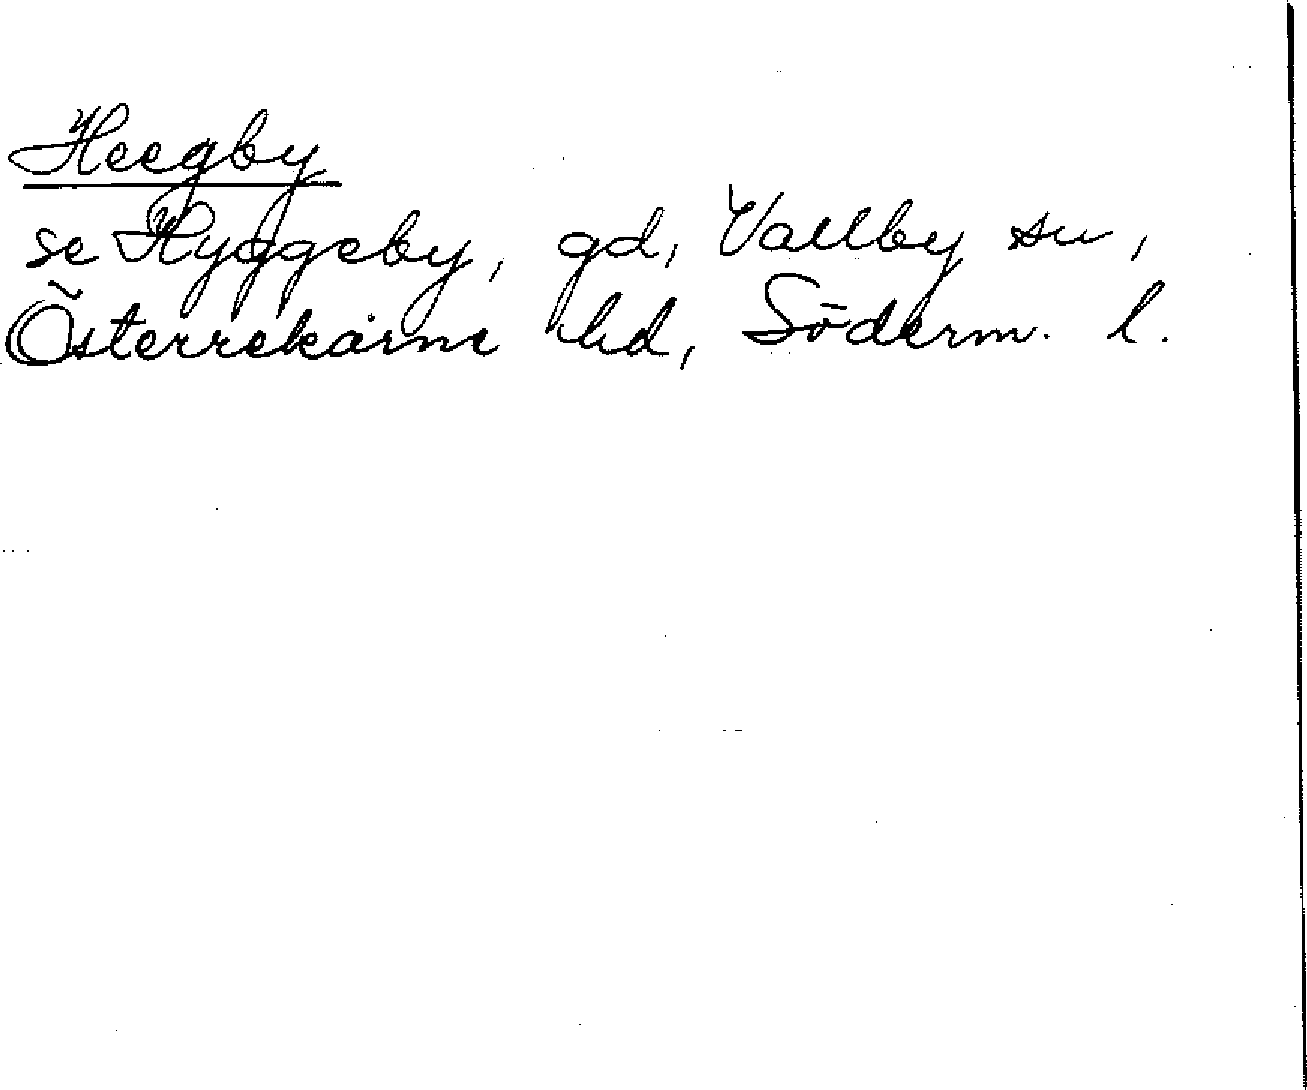 Heegby
se Hyggeby, gd, Vallby sn,
Österrekarne hd, Söderm. l.